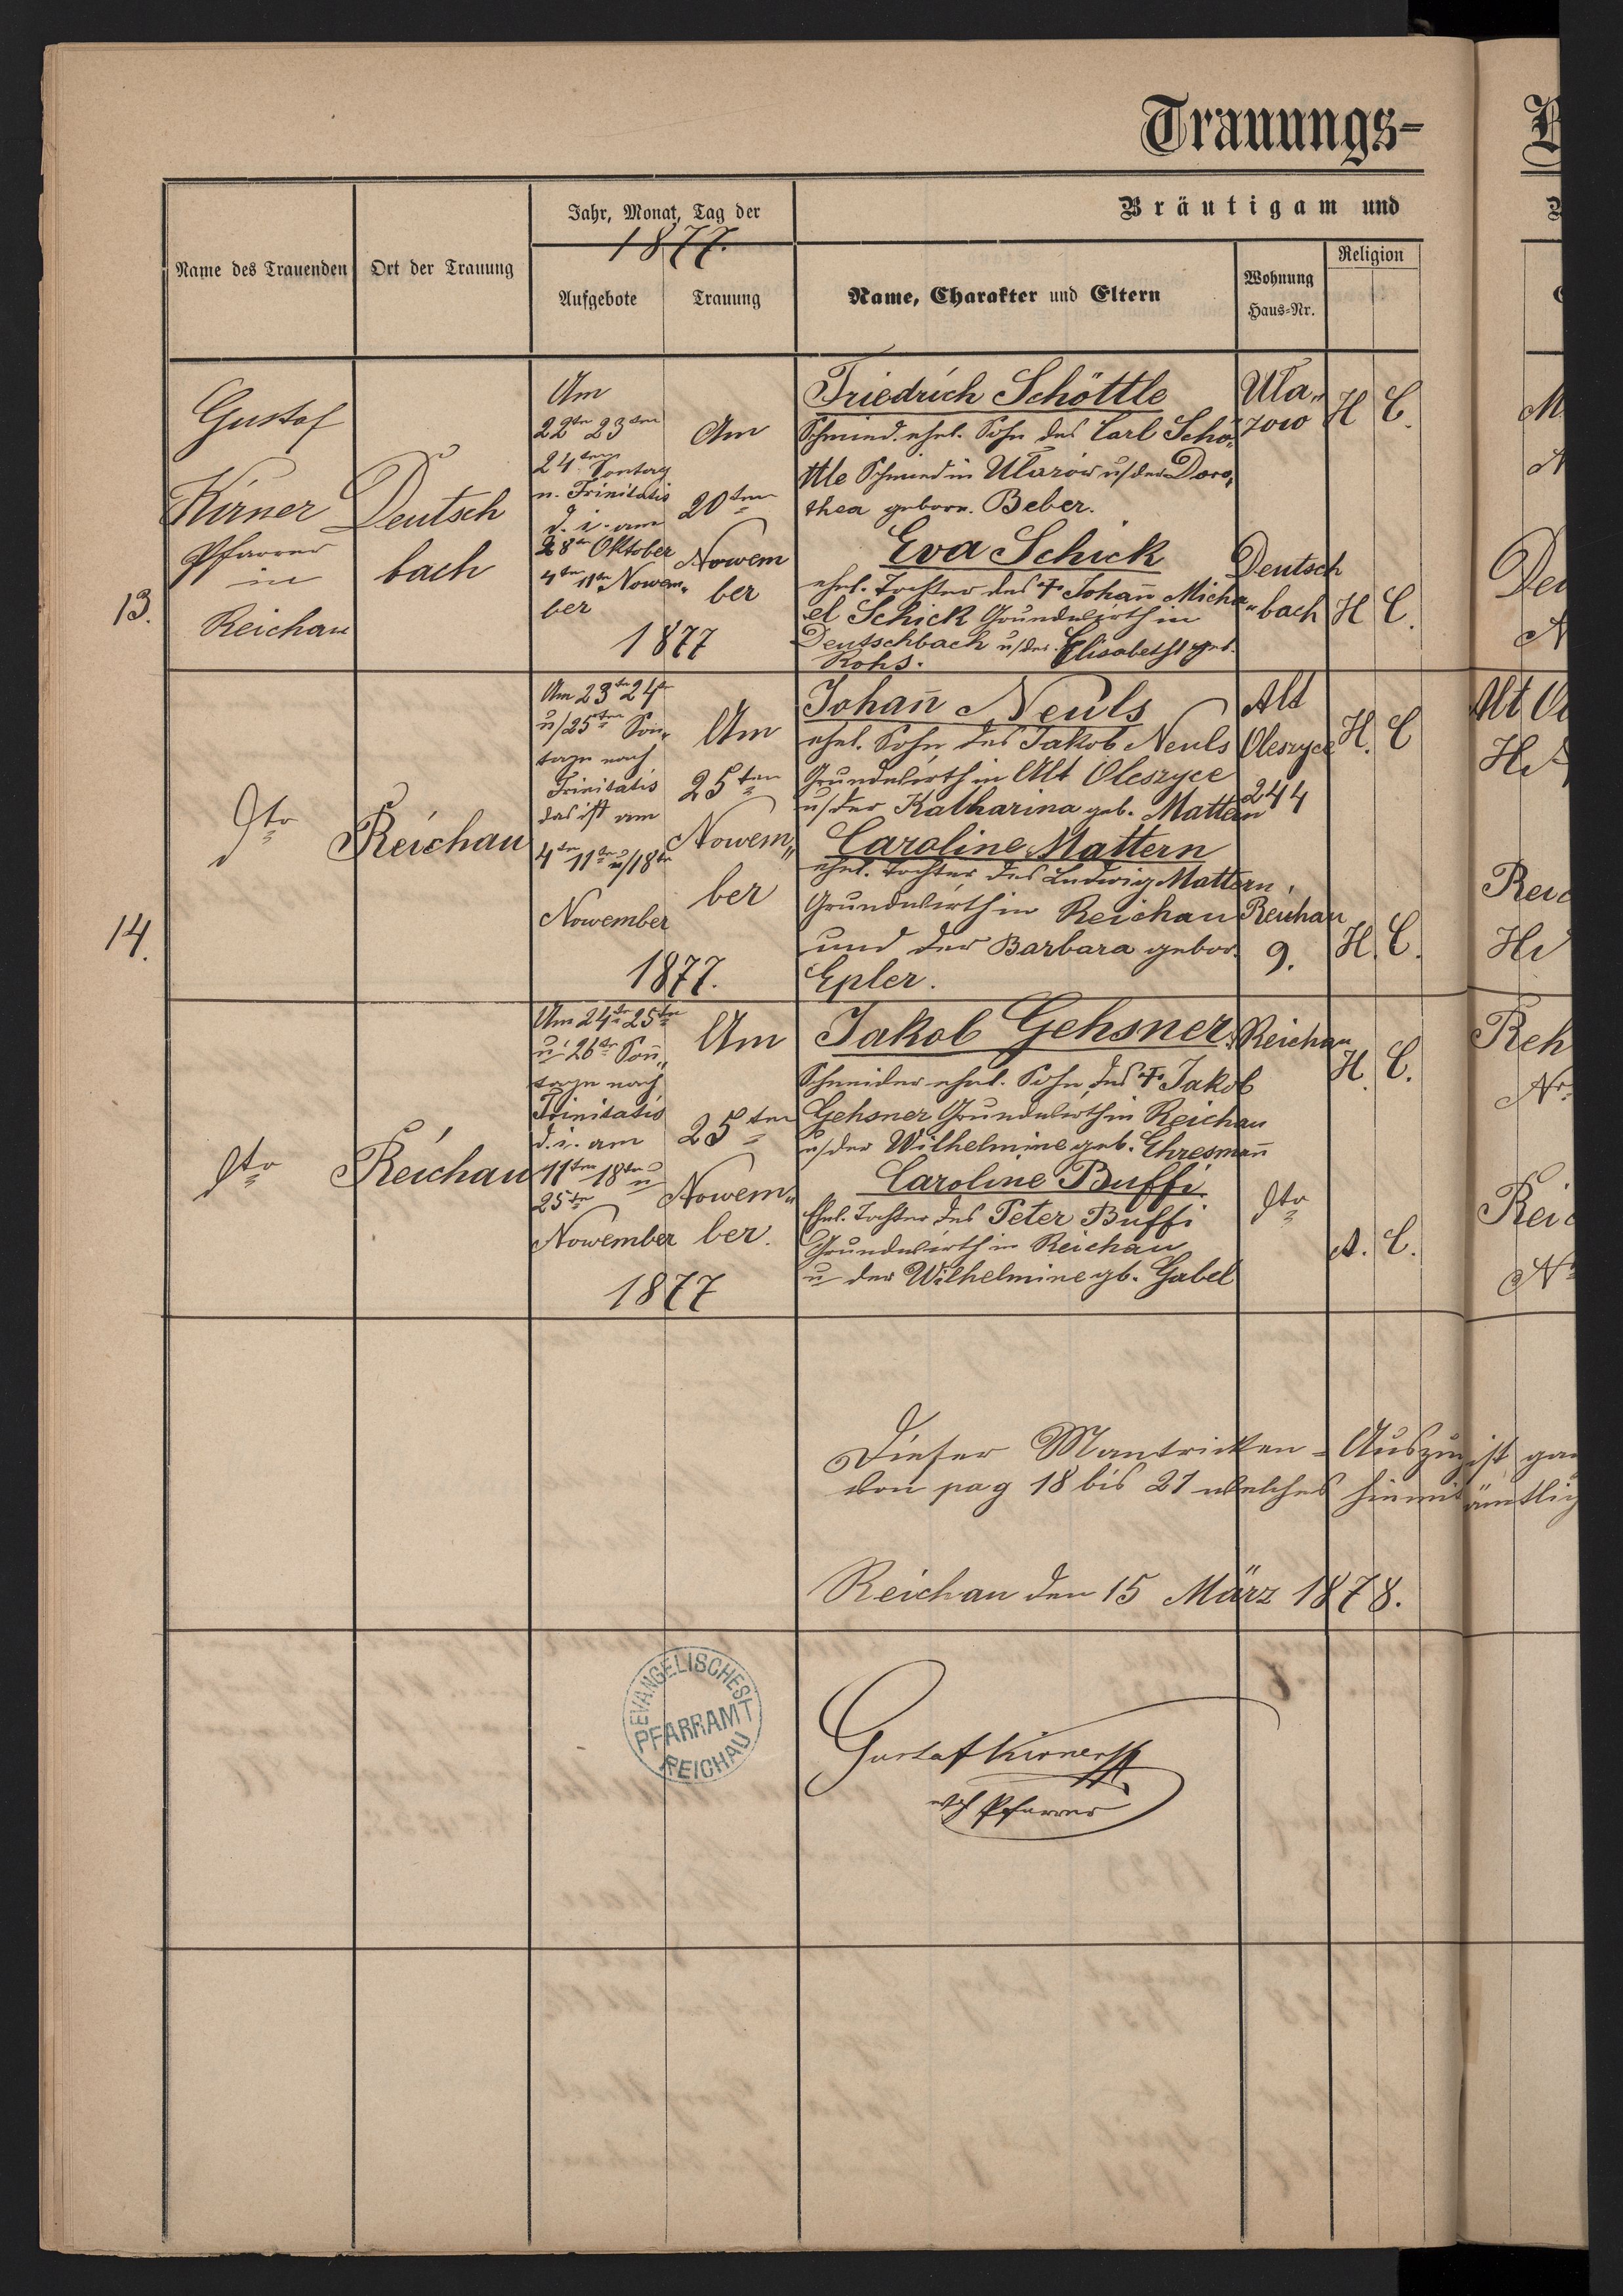 Trauungs-
Bräutigam und
Jahr, Monat, Tag der
1877.
Name des Trauenden
Ort der Trauung
Aufgebote
Trauung
Name, Charakter und Eltern
Wohnung
Haus-Nr.
Religion
13.
Gustaf
Kirner
Pfarrer
in
Reichau
Deutsch
bach
Am
22ten 23ten
24ten Sontag
n. Trinitatis
d. i. am
28ten Oktober
4ten 11ten Nowem„
ber
1877
Am
20ten
Nowem
ber
Friedrich Schöttle
Schmied. ehel. Sohn des Carl Schö„
ttle Schmied in Ułazów u/der Doro„
thea geborn. Beber.
Uła„
zow
H C.
Eva Schick
ehel. Tochter des † Johan̄ Micha„
el Schick Grundwirth in
Deutschbach u/der Elisabetha geb.
Rohs.
Deutsch
bach
H C.
14.
dto
Reichau
Am 23ten 24ten
u/25ten Son„
tage nach
Trinitatis
das ist am
4ten 11ten u/18ten
Nowember
1877.
Am
25ten
Nowem„
ber
Johan̄ Neuls
ehel. Sohn des Jakob Neuls
Grundwirth in Alt Oleszyce
u/der Katharina geb. Mattern
Alt
Oleszyce
244
H. C
Caroline Mattern
ehel. Tochter des Ludwig Mattern,
Grundwirth in Reichau
und der Barbara gebor.
Epler.
Reichau
9.
H. C.
dto
Reichau
Am 24ten 25ten
u 26ten Son̄„
tage nach
Trinitatis
d. i. am
11ten 18ten u
25ten
Nowember
1877
Am
25ten
Nowem„
ber.
Jakob Gehsner
Schneider ehel. Sohn des † Jakob
Gehsner Grundwirth in Reichau
u/der Wilhelmine geb. Ehresman̄
Reichau
H. C.
Caroline Buffi
Ehel. Tochter des Peter Buffi
Grundwirth in Reichau
u der Wilhelmine gb. Gabel
dto
A. C.
Dieser Mantricken-Auszug ist
von pag 18 bis 21 welches hiemit ämtlich
Reichau den 15 März 1878.
EVANGELISCHES
PFARRAMT
REICHAU
Gustaf Kirner
Pfarrer